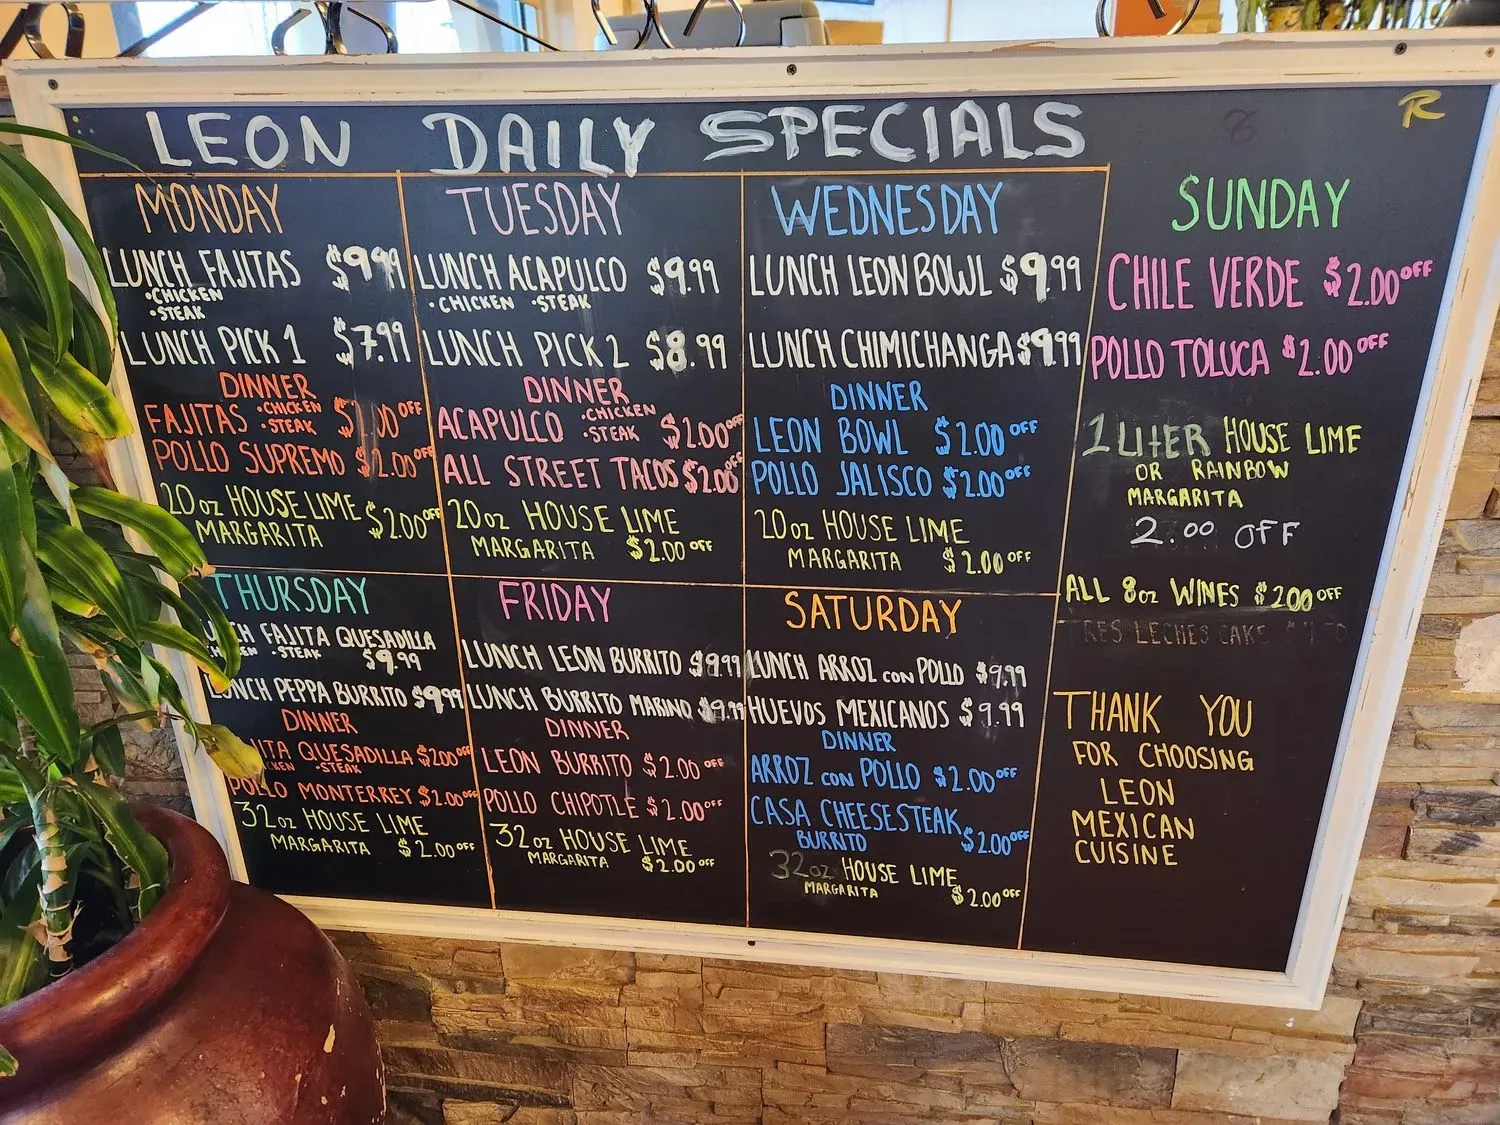 LEON DAILY SPECIALS
R
MONDAY
LUNCH FAJITAS $9.99
•CHICKEN
•STEAK
LUNCH PICK 1 $7.99
DINNER
FAJITAS •CHICKEN •STEAK $2.00 OFF
POLLO SUPREMO $2.00 OFF
20oz HOUSE LIME
MARGARITA $2.00 OFF
TUESDAY
LUNCH ACAPULCO $9.99
•CHICKEN •STEAK
LUNCH PICK 2 $8.99
DINNER
ACAPULCO •CHICKEN •STEAK $2.00 OFF
ALL STREET TACOS $2.00 OFF
20oz HOUSE LIME
MARGARITA $2.00 OFF
WEDNESDAY
LUNCH LEON BOWL $9.99
LUNCH CHIMICHANGA $9.99
DINNER
LEON BOWL $2.00 OFF
POLLO JALISCO $2.00 OFF
20oz HOUSE LIME
MARGARITA $2.00 OFF
SUNDAY
CHILE VERDE $2.00 OFF
POLLO TOLUCA $2.00 OFF
1 LITER HOUSE LIME
OR RAINBOW
MARGARITA
2.00 OFF
ALL 8oz WINES $2.00 OFF
TRES LECHES CAKE
THANK YOU
FOR CHOOSING
LEON
MEXICAN
CUISINE
THURSDAY
LUNCH FAJITA QUESADILLA
CHICKEN •STEAK $9.99
LUNCH PEPPA BURRITO $9.99
DINNER
FAJITA QUESADILLA $2.00 OFF
CHICKEN •STEAK
POLLO MONTERREY $2.00 OFF
32oz HOUSE LIME
MARGARITA $2.00 OFF
FRIDAY
LUNCH LEON BURRITO $9.99
LUNCH BURRITO MARINO $9.99
DINNER
LEON BURRITO $2.00 OFF
POLLO CHIPOTLE $2.00 OFF
32oz HOUSE LIME
MARGARITA $2.00 OFF
SATURDAY
LUNCH ARROZ CON POLLO $9.99
HUEVOS MEXICANOS $9.99
DINNER
ARROZ CON POLLO $2.00 OFF
CASA CHEESESTEAK
BURRITO $2.00 OFF
32oz HOUSE LIME
MARGARITA $2.00 OFF